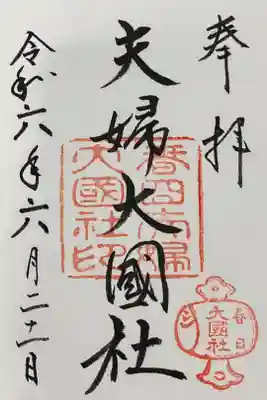 奉拝
夫婦大國社
春日夫婦
大國社印
春日
大國社
令和六年六月二十一日